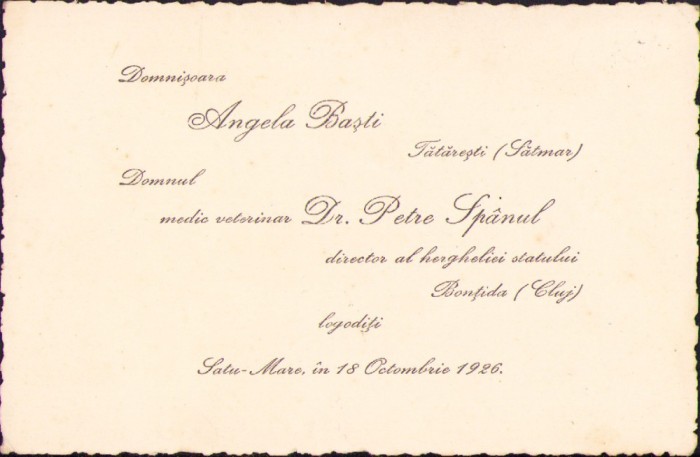 Domnișoara
Angela Baști
Tătărești (Sătmar)
Domnul
medic veterinar Dr. Petre Spânul
director al hergheliei statului
Bonțida (Cluj)
logodiți
Satu-Mare, în 18 Octombrie 1926.